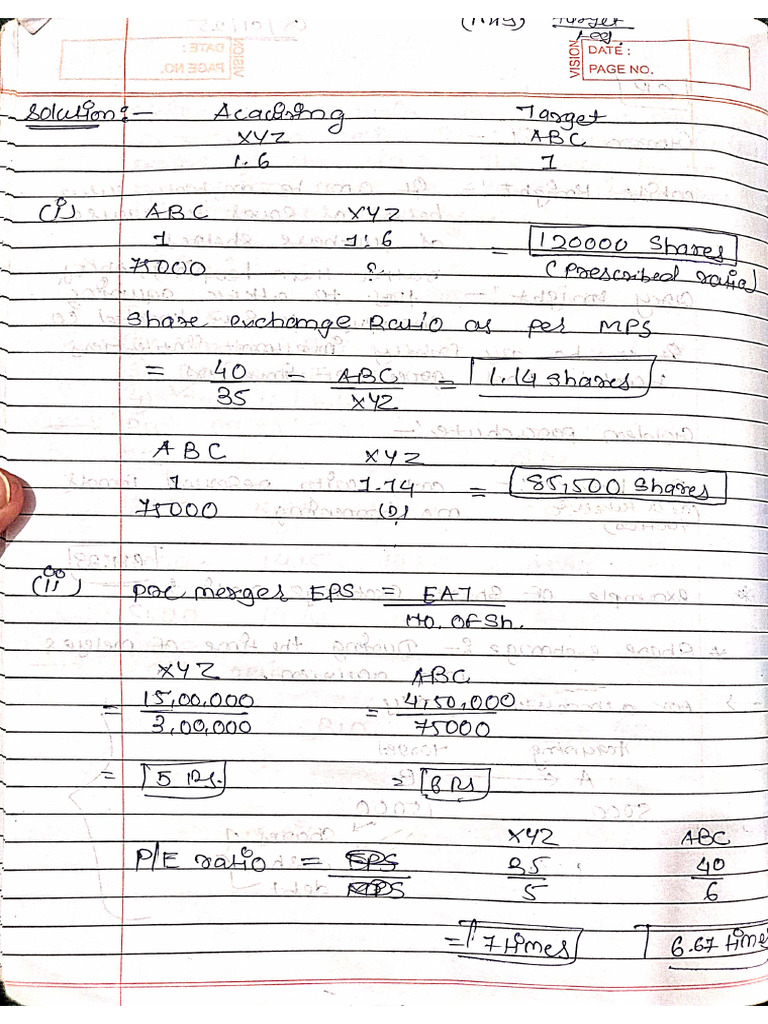 Target
VISION DATE :
PAGE NO.
Solution :- Acquiring Target
XYZ ABC
1.6 1
(i) ABC XYZ
1 1.6 = 120000 Shares
75000 ? (Prescribed ratio)
Share exchange Ratio as per MPS
= 40/35 = ABC/XYZ = 1.14 shares
ABC XYZ
1 1.14 = 85,500 Shares
75000 (?)
(ii) pre merger EPS = EAT
No. of Sh.
XYZ ABC
= 15,00,000/3,00,000 = 4,50,000/75000
= 5 Rs. = 6 Rs
XYZ ABC
P/E ratio = 35/5 40/6
= 7 times 6.67 time